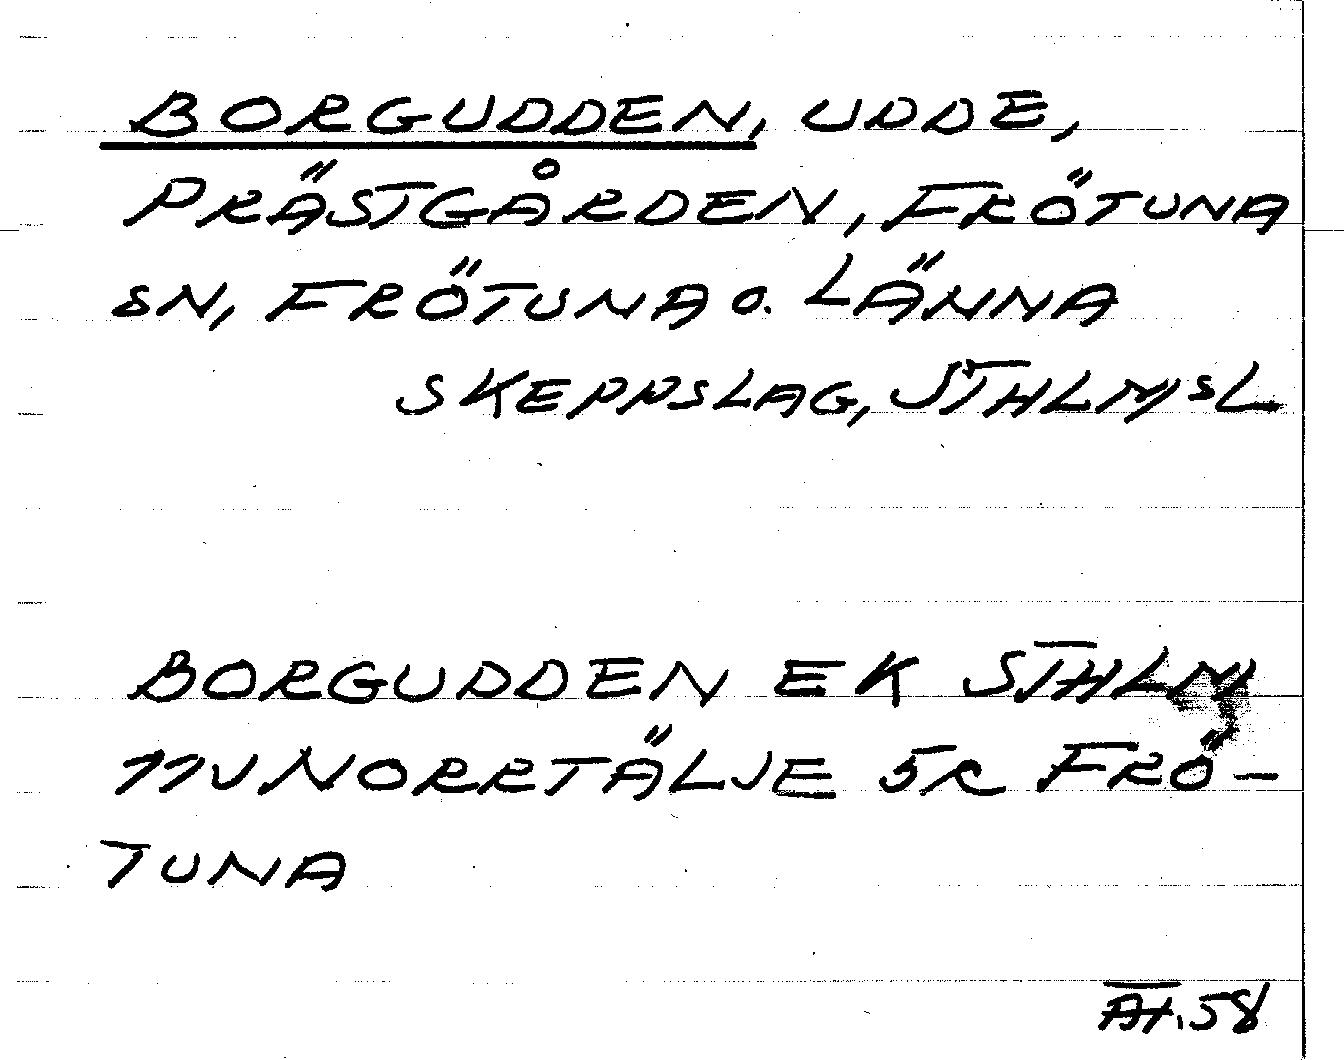 BORGUDDEN, UDDE,
PRÄSTGÅRDEN, FRÖTUNA
SN, FRÖTUNA o. LÄNNA
SKEPPSLAG, STHLMSL
BORGUDDEN EK STHLM
11J NORRTÄLJE 5c FRÖ-
TUNA
58